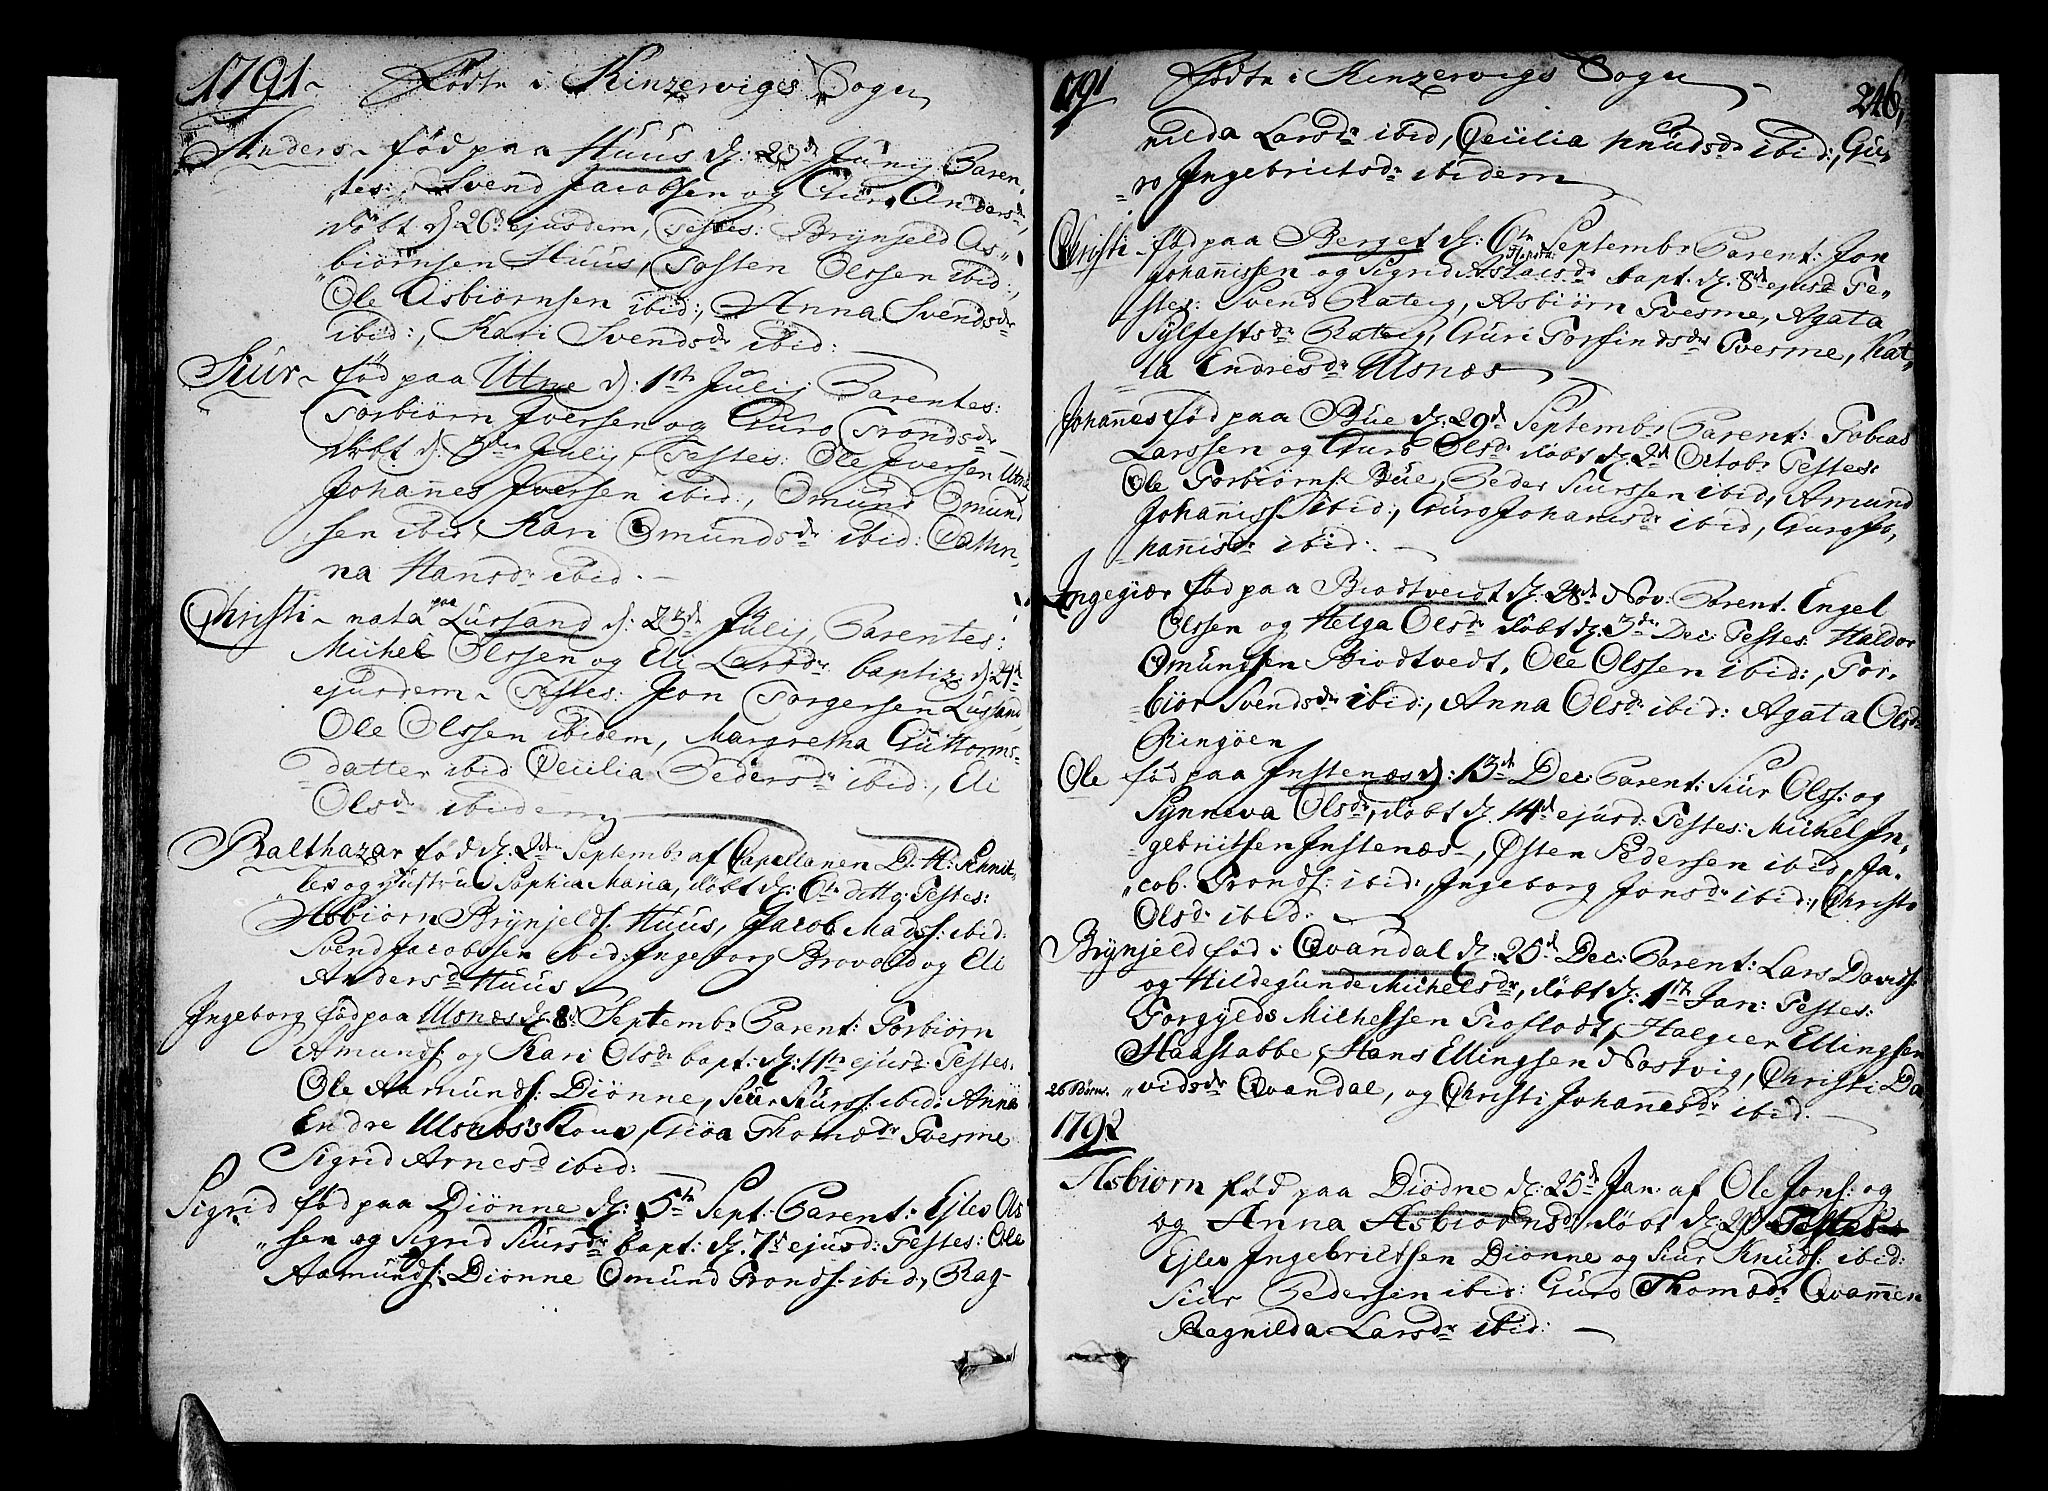 1791 Födte i Kinzervigs Sogn
Anders fød paa Huus d: 23d Junij Paren-
tes: Svend Jacobsen og Guro Andersdr
døbt d 26d ejusdem, Testes: Brynjeld As-
biørnsen Huus, Tosten Olssen ibid:,
Ole Asbiørnsen ibid:, Anna Svendsdr
ibid:, Kari Svendsdr ibid:
Siur fød paa Utne d: 1ste Julij Parentes:
Torbiørn Iversen og Guro Trondsdr
døbt d: Julij, Testes: Ole Iversen Utne
Johannes Iversen ibid:, Omund Omund
sen ibid, Kari Omundsdr ibid: Cathri-
na Hansdr ibid.
Christi nata paa Lussand d: 23d Julij, Parentes:
Michel Olssen og Eli Larsdr baptiz: d 24d
ejusdem Testes: Jon Torgersen Lussand,
Ole Olssen ibidem, Margretha Guttorms-
datter ibid Cecilia Pedersdr ibid:, Eli
Olsdr ibidem
Balthazar fød d: 2den Septembr af Capellanen D: H: Schnit-
ler og Hustrue Sophia Maria, døbt d: 6te detto: Testes:
Asbiørn Brynjelds: Huus, Jacob Madss: ibid:
Svend Jacobssen ibid: Ingeborg Brovold og Eli
Andersd Huus
Ingeborg fød paa Ulsnæs d: 8d Septembr Parent: Torbiørn
Amunds: og Kari Olsdr bapt: d: 11te ejusd: Testes:
Ole Aamunds: Diönne, Siur Siurss: ibid: Anna
Endre Ulsnæs Kone, Giöa Thomædr Tvesme
Sigrid Arnesd ibid:
Sigrid fød paa Diönne d: 5te Sept: Parent: Ejlev Ols
sen og Sigrid Siursdr bapt: d: 7d ejusd: Testes: Ole
Aamunds: Diönne Omund Tronds: ibid:, Rag-
1791 Födte i Kinzervigs Sogn 246,
nilda Larsdr ibid, Cecilia Knudsdr ibid:, Gu-
ro Ingebrictsdr ibidem
Christi fød paa Berget d: 6te Septembr Parent: Jon
Johannissen og Sigrid Aslacsdr bapt. d. 8d ejusd Te-
stes: Svend Rateig, Asbiørn Tvesme, Agata
Sylfestsdr Rateig, Guri Torfindsdr Tvesme, Kat-
la Endresdr Ulsnæs
Johannes fød paa Bue d: 29d Septembr Parent: Tobias
Larssen og Guro Olsdr døbt d: 2d Octobr Testes
Ole Torbiørns: Bue, Peder Siurssen ibid, Amund
Johaniss ibid:, Guro Johanisdr ibid, Guro Jo,
hannisdr ibid:
Ingegiær fød paa Biodtveidt d: 28d Nov: Parent. Engel
Olssen og Helga Olsdr døbt d: 3die Dec: Testes: Haldor
Omundsen Biodtvedt, Ole Olssen ibid:, Tor-
biör Svendsdr ibid:, Anna Olsdr ibid: Agata Olsdr
Ringöen
Ole fød paa Instenæs d: 13d Dec: Parent: Siur Olss: og
Synneva Olsdr, døbt d. 14d ejusd: Testes: Michel In-
gebritsen Instenæs, Østen Pedersen ibid, Ja-
cob. Tronds: ibid:, Ingeborg Jonsdr ibid:, Christi
Olsdr ibid:
Brynjeld fød i Qvandal d: 25d Dec: Parent: Lars Davids:
og Hildegunde Michelsdr, døbt d: 1ste Jan: Testes:
Torgyeds Michelsen Tioflodt, Halgier Ellingsen
Haastabbe, Hans Ellingsen Nostvig, Christi Da,
26 Børn. vidsdr Qvandal, og Christi Johannesdr ibid:
1792
Asbiørn fød paa Diödne d: 25d Jan: af Ole Jons: og
og Anna Asbiørnsdr døbt d: 29d Testes
Ejlev Ingebrictsen Diönne og Siur Knuds: ibid:
Siur Pedersen ibid: Guro Thomædr Qvammen
Ragnilda Larsdr ibid: